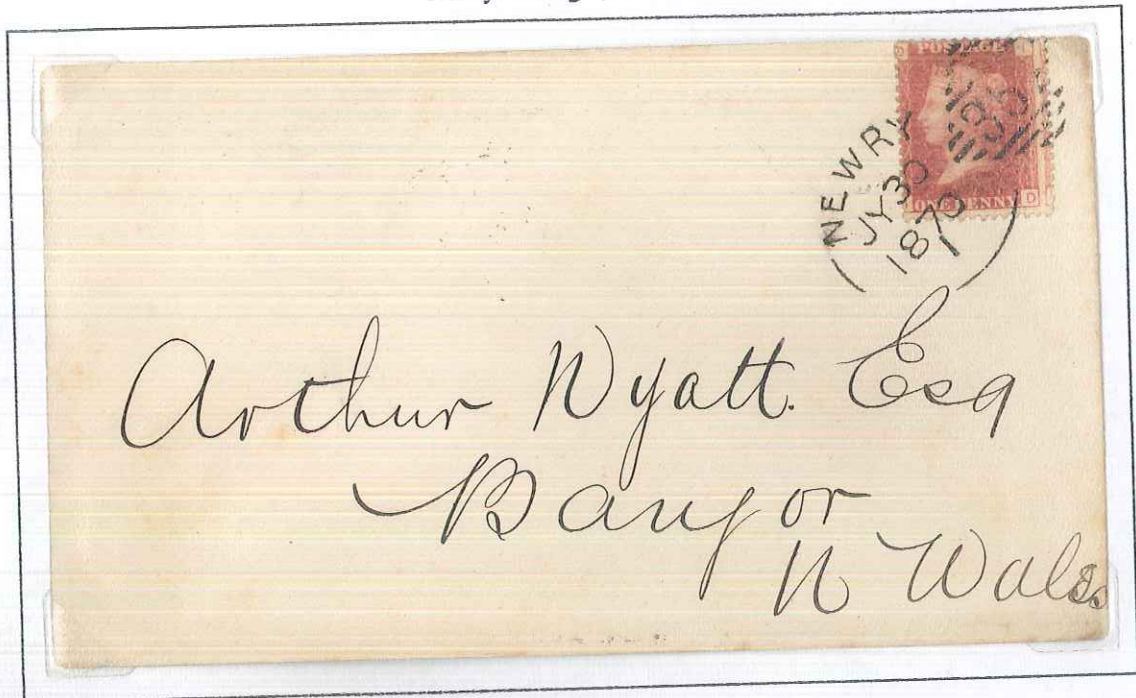 POSTAGE
ONE PENNY
D
NEWRY
JY 30
1870
Arthur Wyatt. Esq
Bangor
N Wales